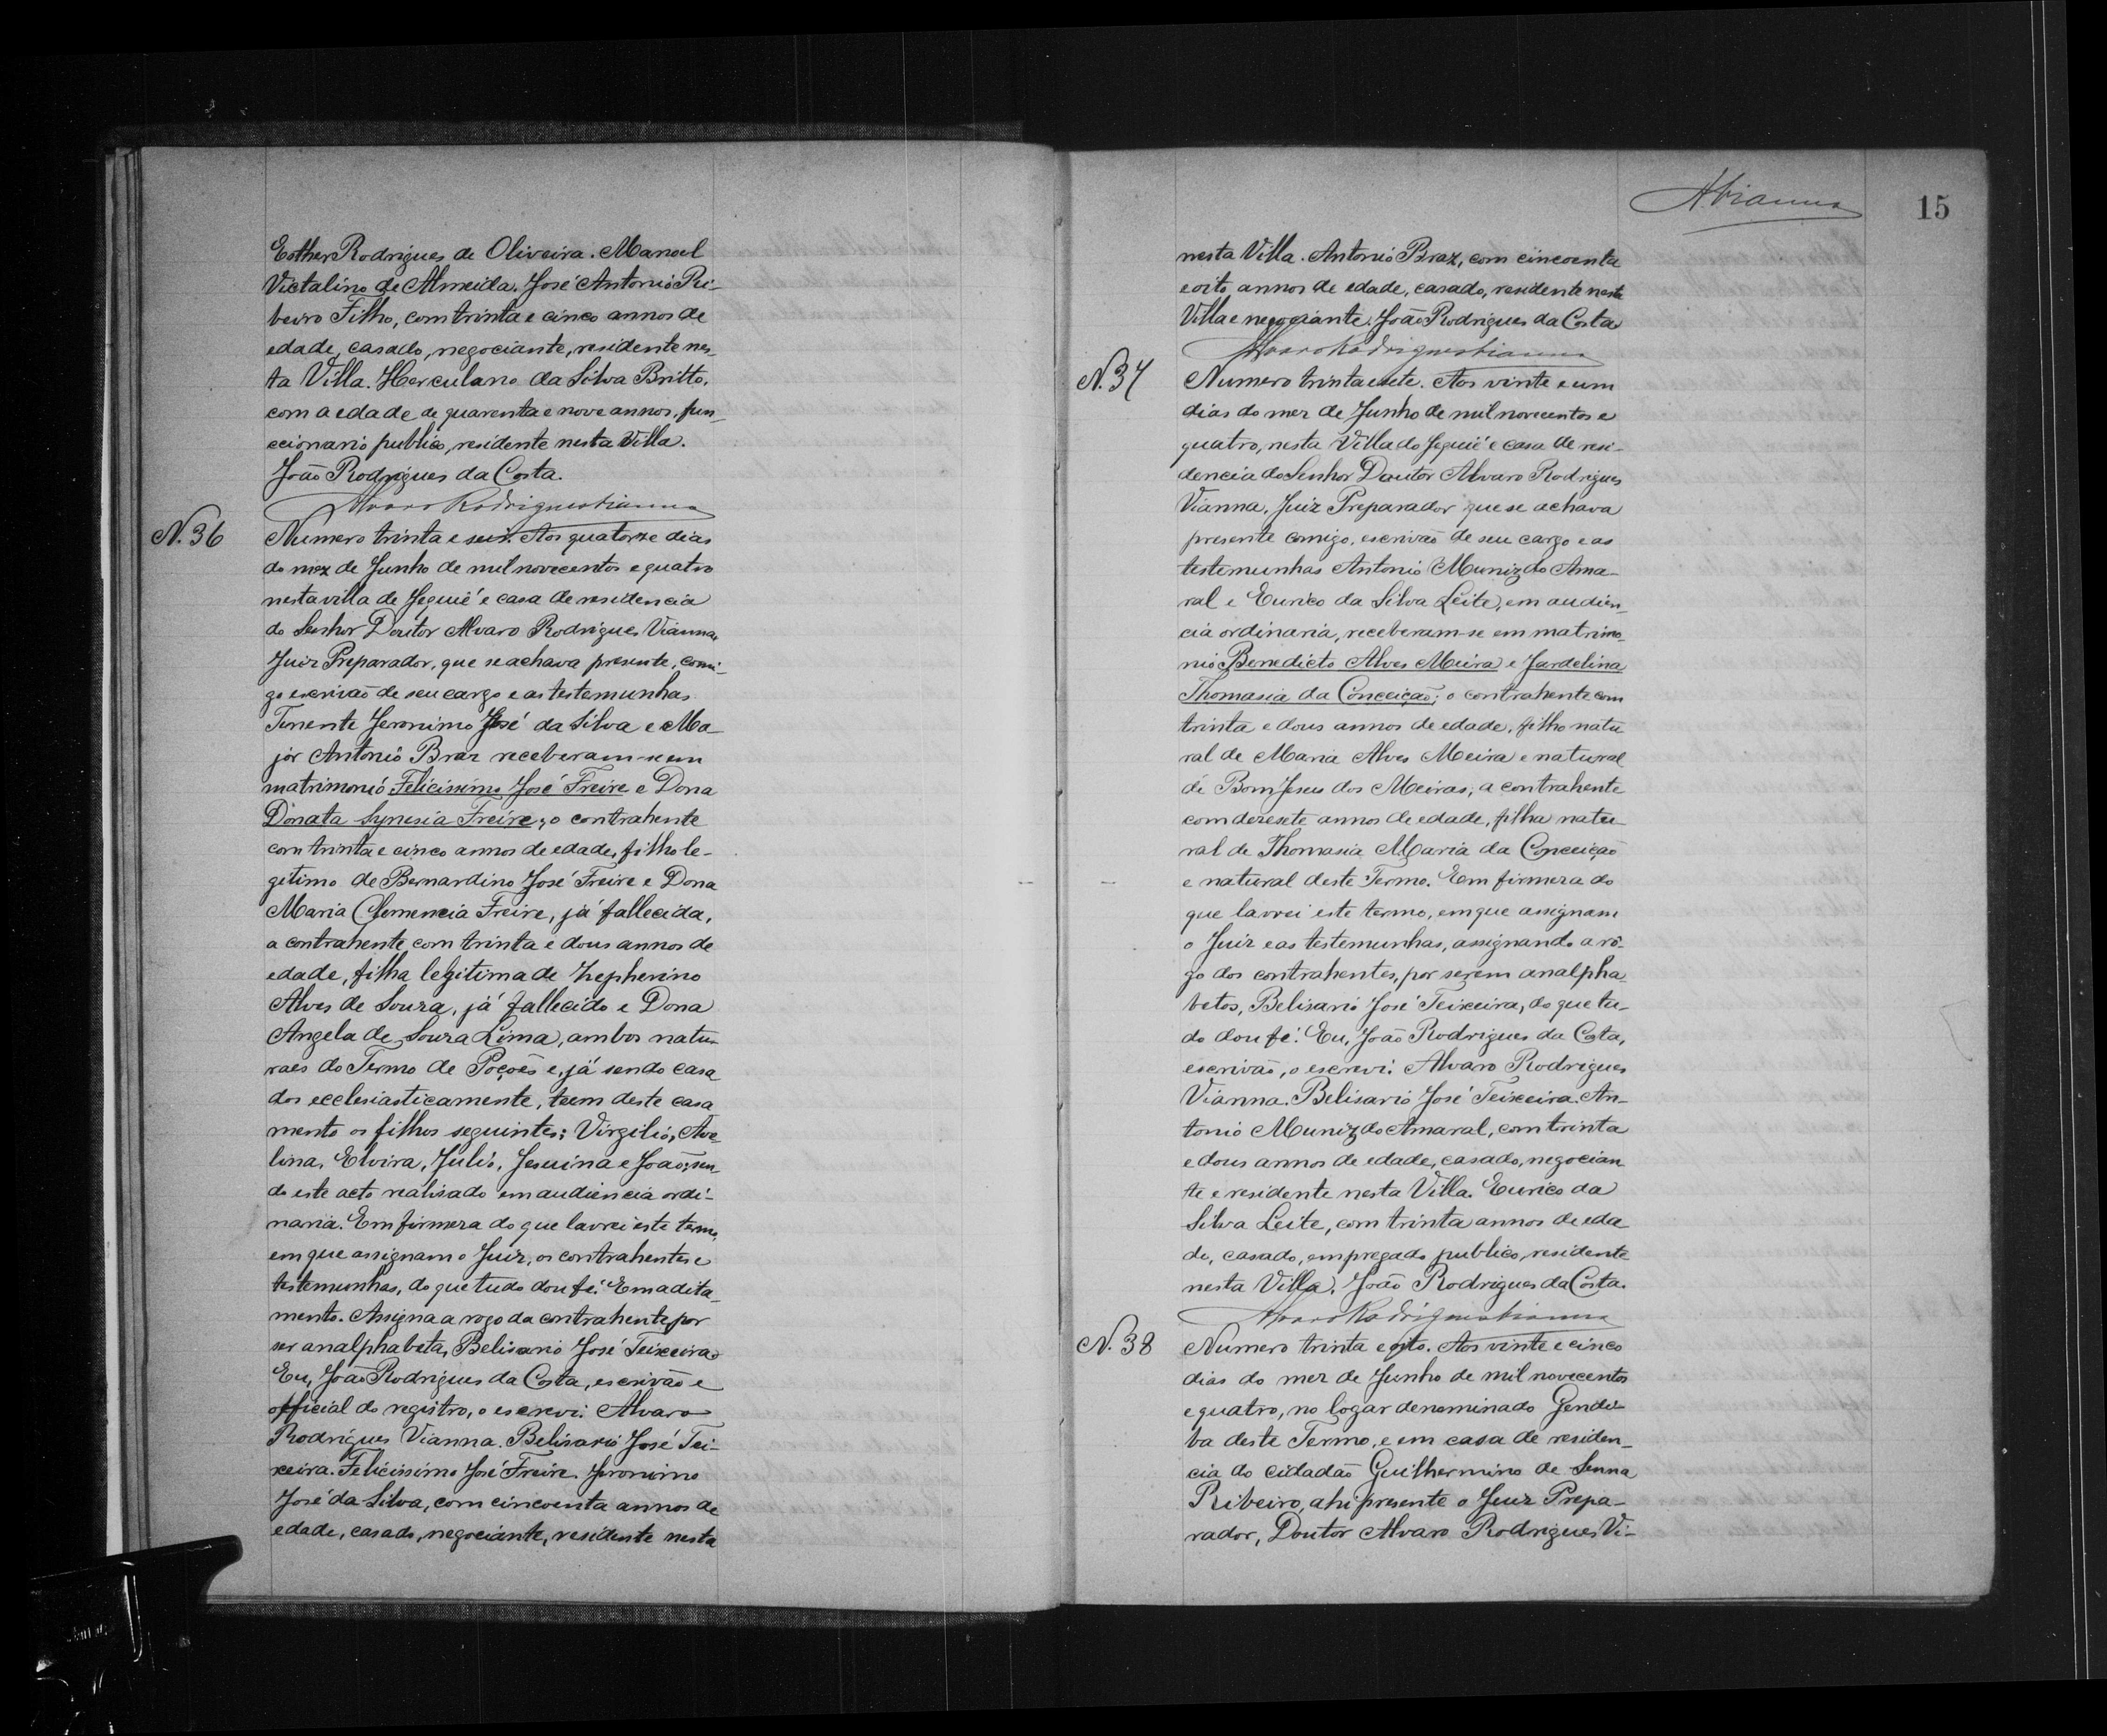 Esther Rodrigues de Oliveira. Manoel
Victalino de Almeida. José Antonio Ri-
beiro Filho, com trinta e cinco annos de
edade, casado, negociante, residente nes-
ta Villa. Herculano da Silva Britto,
com a edade de quarenta e nove annos, fun-
ccionario publico, residente nesta Villa.
João Rodrigues da Costa.
Alvaro Rodrigues Vianna
N. 36
Numero trinta e seis. Aos quatorze dias
do mez de Junho de mil novecentos e quatro
nesta villa de Jequié e casa de residencia
do Senhor Doutor Alvaro Rodrigues Vianna,
Juiz Preparador, que se achava presente, comi-
go escrivão de seu cargo e as testemunhas
Tenente Jeronimo José da Silva e Ma-
jor Antonio Braz receberam-se em
matrimonio Felicissimo José Freire e Dona
Donata Synesia Freire; o contrahente
com trinta e cinco annos de edade, filho le-
gitimo de Bernardino José Freire e Dona
Maria Clemencia Freire, já fallecida,
a contrahente com trinta e dous annos de
edade, filha legitima de Zepherino
Alves de Souza, já fallecido e Dona
Angela de Souza Lima, ambos natu-
raes do Termo de Poções e, já sendo casa
dos ecclesiasticamente, teem deste casa
mento os filhos seguintes: Virgilio, Ave-
lina, Elvira, Julio, Jesuina e João; sen-
do este acto realisado em audiencia ordi-
naria. Em firmeza do que lavrei este termo,
em que assignam o Juiz, os contrahentes e
testemunhas, do que tudo dou fé. Em adita-
mento. Assigna a rogo da contrahente por
ser analphabeta, Belisario José Teixeira.
Eu, João Rodrigues da Costa, escrivão e
official do registro, o escrevi. Alvaro
Rodrigues Vianna. Belisario José Tei-
xeira. Felicissimo José Freire. Jeronimo
José da Silva, com cincoenta annos de
edade, casado, negociante, residente nesta
AVianna
15
nesta Villa. Antonio Braz, com cincoenta
e oito annos de edade, casado, residente nesta
Villa e negociante. João Rodrigues da Costa
Alvaro Rodrigues Vianna
N. 37
Numero trinta e sete. Aos vinte e um
dias do mez de Junho de mil novecentos e
quatro, nesta Villa do Jequié e casa de resi-
dencia do Senhor Doutor Alvaro Rodrigues
Vianna, Juiz Preparador que se achava
presente comigo, escrivão de seu cargo e as
testemunhas Antonio Muniz do Ama-
ral e Eurico da Silva Leite, em audien-
cia ordinaria, receberam-se em matrimo-
nio Benedicto Alves Meira e Jardelina
Thomasia da Conceição; o contrahente com
trinta e dous annos de edade, filho natu
ral de Maria Alves Meira e natural
de Bom Jesus dos Meiras; a contrahente
com dezesete annos de edade, filha natu-
ral de Thomasia Maria da Conceição
e natural deste Termo. Em firmeza do
que lavrei este termo, em que assignam
o Juiz e as testemunhas, assignando a ro-
go dos contrahentes, por serem analpha-
betos, Belisario José Teixeira, do que tu-
do dou fé. Eu, João Rodrigues da Costa,
escrivão, o escrevi. Alvaro Rodrigues
Vianna. Belisario José Teixeira. An-
tonio Muniz do Amaral, com trinta
e dous annos de edade, casado, negocian
te e residente nesta Villa. Eurico da
Silva Leite, com trinta annos de eda
de, casado, empregado publico, residente
nesta Villa. João Rodrigues da Costa.
Alvaro Rodrigues Vianna
N. 38
Numero trinta e oito. Aos vinte e cinco
dias do mez de Junho de mil novecentos
e quatro, no logar denominado Gendi-
ba deste Termo, e em casa de residen-
cia do cidadão Guilhermino de Senna
Ribeiro, ahi presente o Juiz Prepa-
rador, Doutor Alvaro Rodrigues Vi-